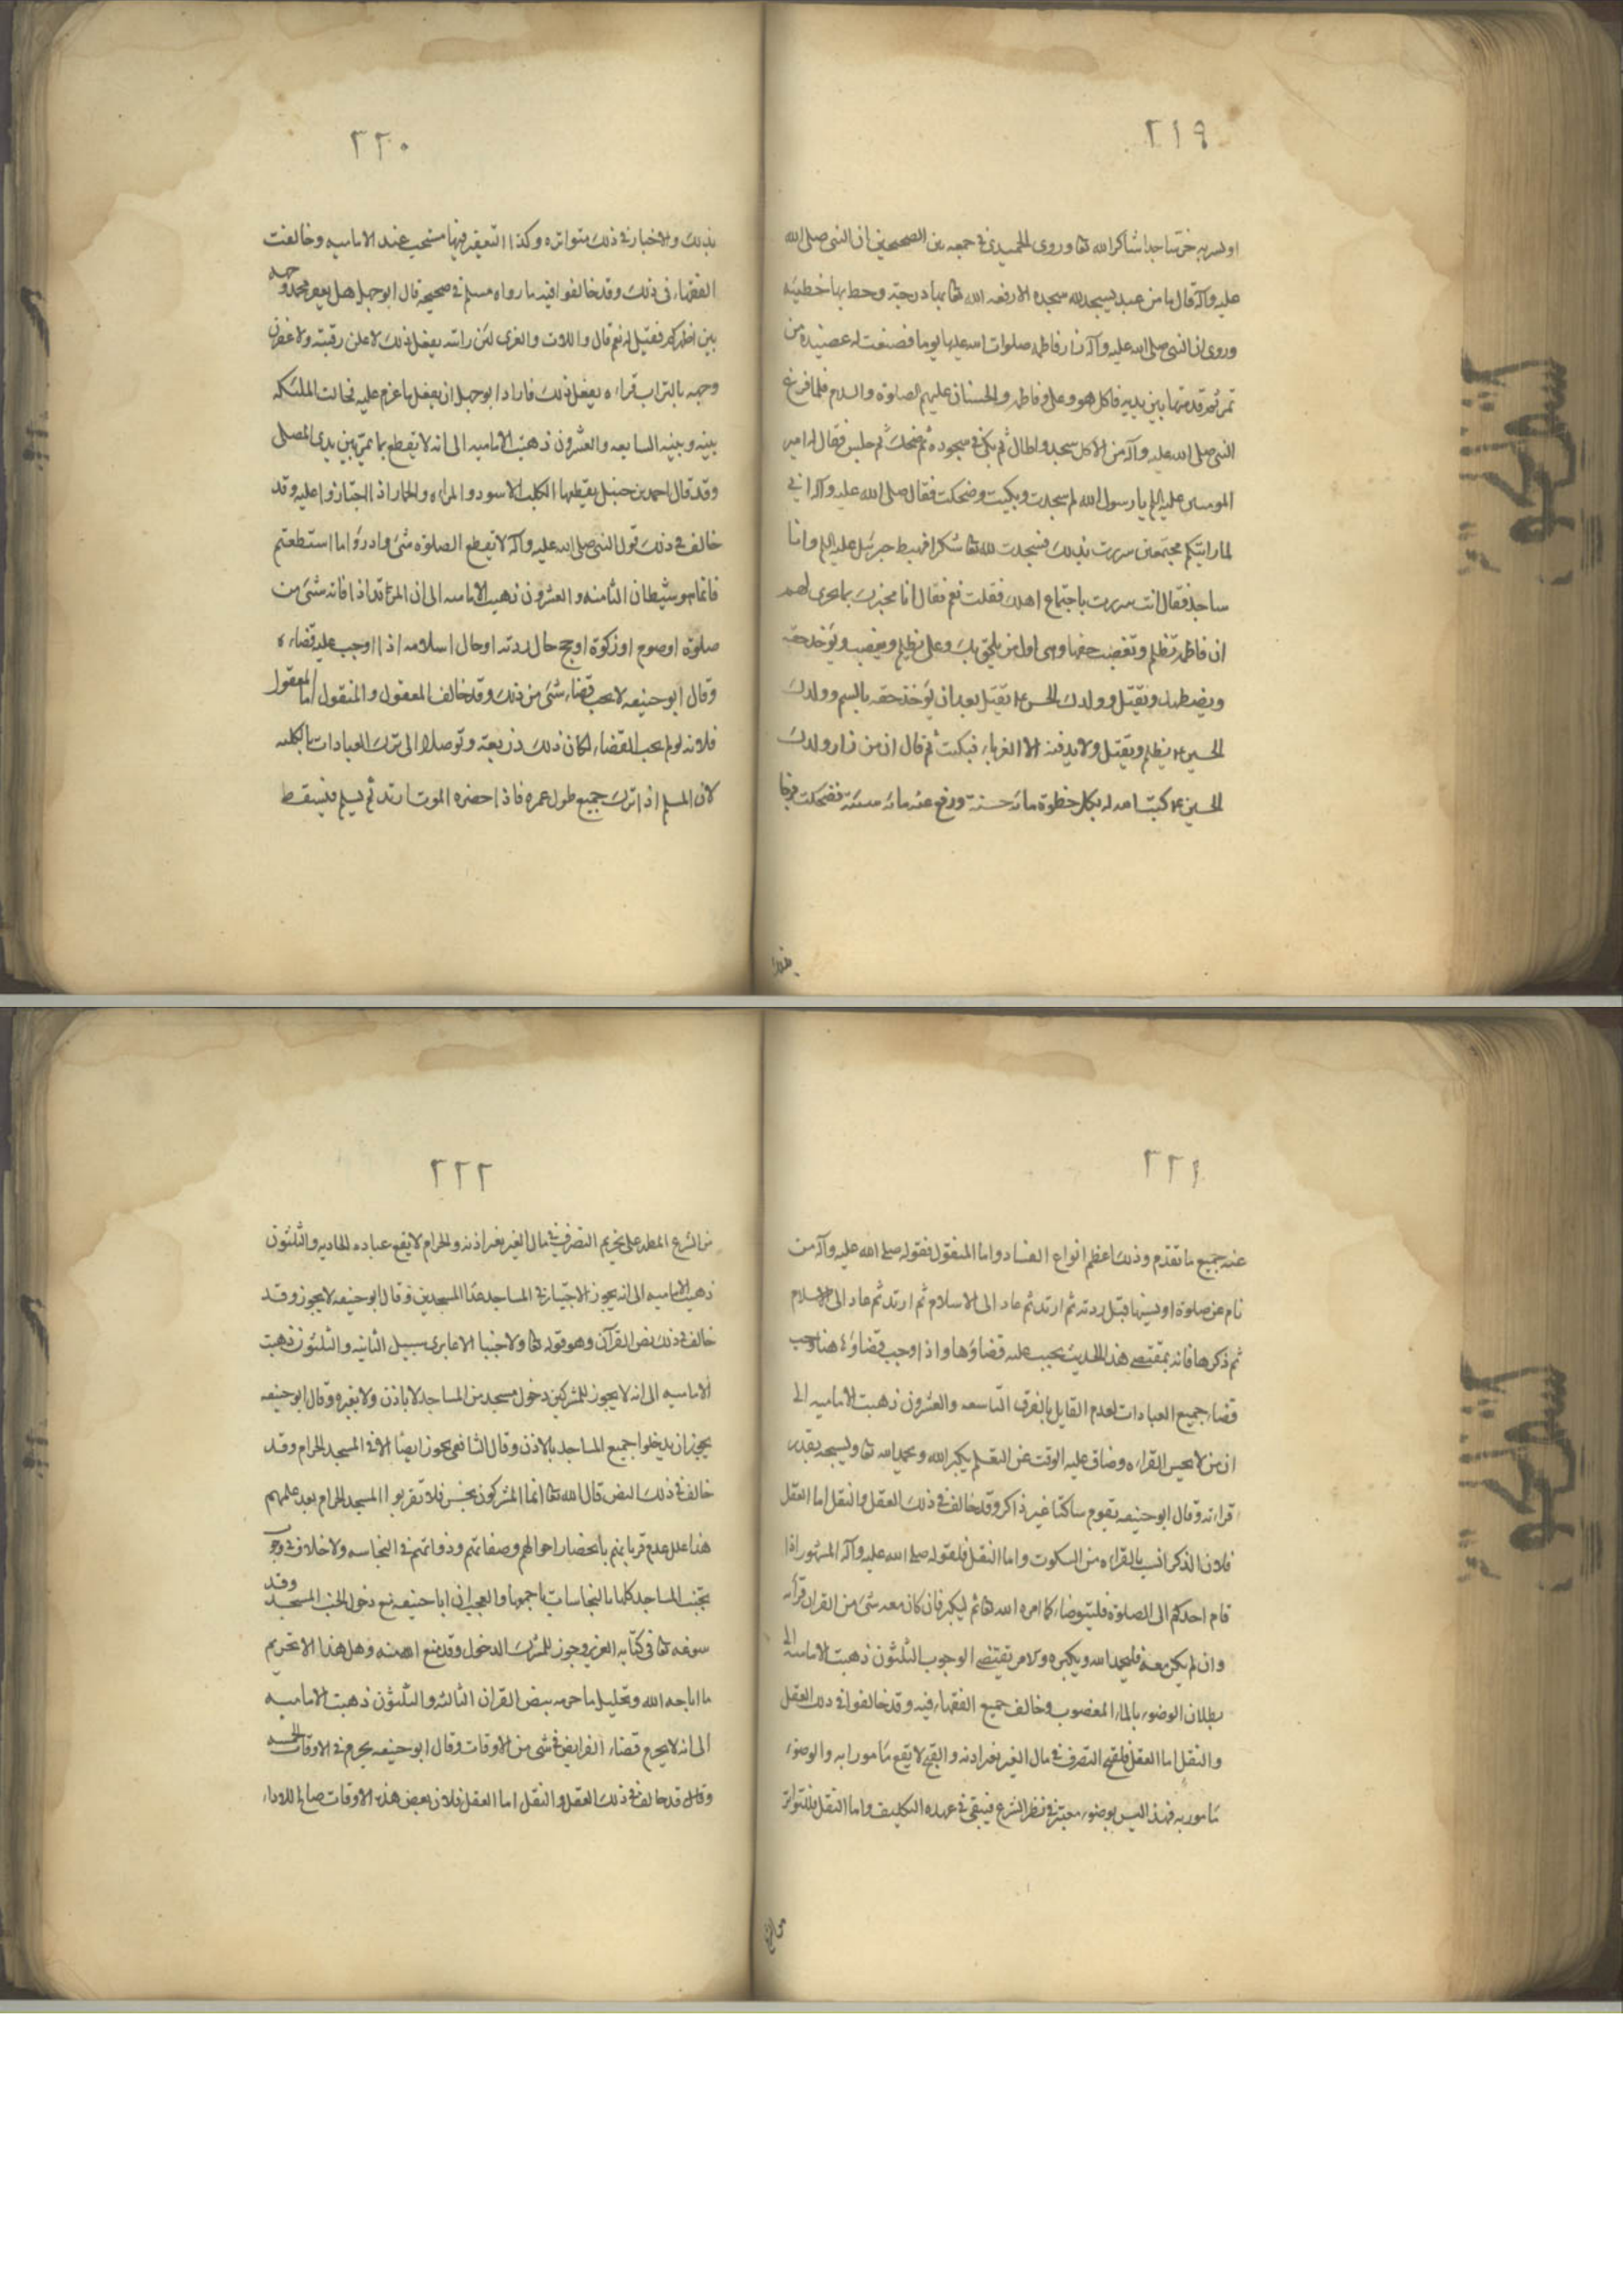 ٢١٩
او يسر به خر ساجدا شاكرا لله تعا وروى الحميدى فى جمعه بين الصحيحين ان النبى صلى الله
عليه وآله قال ما من عبد يسجد لله سجده الا رفعه الله تعا بها درجة وحط بها خطيئه
وروى ان النبى صلى الله عليه وآله زار فاطمه صلوات الله عليها يوما فصنعت له عصيده من
تمر ثم قدمتها بين يديه فاكل هو وعلى وفاطمه والحسنان عليهم الصلوة والسلام فلما فرغ
النبى صلى الله عليه وآله من الاكل سجد واطال ثم بكى فى سجوده ثم ضحك ثم جلس فقال له امير
المومنين عليه السلم يا رسول الله لم سجدت وبكيت وضحكت فقال صلى الله عليه وآله انى
لما رايتكم مجتمعين سررت بذلك فسجدت لله تعا شكرا فهبط جبرئيل عليه السلم وانا
ساجد فقال انت سررت باجتماع اهلك فقلت نعم فقال انا مخبرك بما يجرى لهم
ان فاطمه تظلم وتغصب حقها وهى اول من يلحق بك وعلى يظلم ويغصب ويؤخذ حقه
ويضطهد ويقتل وولدك الحسن ع يقتل بعد ان يؤخذ حقه بالسم وولدك
الحسين ع يظلم ويقتل ولا يدفنه الا الغرباء فبكيت ثم قال ان من زار ولدك
الحسين ع كتب الله له بكل خطوة مائه حسنة ورفع عنه مائه سيئة فضحكت فرحا
بذلك
٢٢٠
بذلك والاخبار فى ذلك متواتره وكذا التعفير فيها مستحب عند الاماميه وخالفت
الفقهاء فى ذلك وقد خالفوا فيه ما رواه مسلم فى صحيحه قال ابو جهل هل يعفر محمد وجهه
بين اظهركم فقيل له نعم قال واللات والعزى لئن راته يفعل ذلك لاعلن رقبته ولاعفرن
وجهه بالتراب فراءه يفعل ذلك فاراد ابو جهل ان يفعل ما عزم عليه فحالت الملئكه
بينه وبينه السابعه والعشرون ذهبت الاماميه الى انه لا يقطع بما يمر بين يدى المصلى
وقد قال احمد بن حنبل يقطعها الكلب الاسود والمراه والحمار اذا اجتازوا عليه وقد
خالف فى ذلك قول النبى صلى الله عليه وآله لا يقطع الصلوة شى وادرؤا ما استطعتم
فانما هو شيطان الثامنه والعشرون ذهبت الاماميه الى ان المرتد اذا فاته شى من
صلوة او صوم او زكوة او حج حال ردته او حال اسلامه اذا اوجب عليه قضاءه
وقال ابو حنيفه لا يجب قضاء شى من ذلك وقد خالف المعقول والمنقول اما المعقول
فلانه لو لم يجب القضاء لكان ذلك ذريعة وتوصلا الى ترك العبادات بالكليه
لان المسلم اذا ترك جميع طول عمره فاذا حضره الموت ارتد ثم يسلم فيسقط
٢٢١
عنه جميع ما تقدم وذلك اعظم انواع الفساد واما المنقول فقوله صلى الله عليه وآله من
نام عن صلوة او نسيها قبل ردته ثم ارتد ثم عاد الى الاسلام ثم ارتد ثم عاد الى الاسلام
ثم ذكرها فانه بمقتضى هذا الحديث يجب عليه قضاؤها واذا وجب قضاؤه هنا وجب
قضاء جميع العبادات لعدم القايل بالفرق التاسعه والعشرون ذهبت الاماميه الى
ان من لا يحسن القراءه وضاق عليه الوقت عن التعلم يكبر الله ويحمد الله تعا ويسبحه بقدر
قراءته وقال ابو حنيفه يقوم ساكتا غير ذاكر وقد خالف فى ذلك العقل والنقل اما العقل
فلان الذكر انسب بالقراءه من السكوت واما النقل فلقوله صلى الله عليه وآله المشهور اذا
قام احدكم الى الصلوة فليتوضاء كما امره الله تعا ثم ليكبر فان كان معه شى من القران قراه
وان لم يكن معه فليحمد الله ويكبره والامر يقتضى الوجوب الثلثون ذهبت الاماميه الى
بطلان الوضوء بالماء المغصوب وخالف جميع الفقهاء فيه وقد خالفوا فى ذلك العقل
والنقل اما العقل فلقبح التصرف فى مال الغير بغير اذنه والقبيح لا يقع مامورا به والوضوء
مامور به فهذا ليس بوضوء معتبر فى نظر الشرع فيبقى فى عهده التكليف واما النقل فللتواتر
من الشرع
٢٢٢
من الشرع المطهر على تحريم التصرف فى مال الغير بغير اذنه والحرام لا يقع عباده الحاديه والثلثون
ذهبت الاماميه الى انه يجوز الاجتياز فى المساجد عدا المسجدين وقال ابو حنيفه لا يجوز وقد
خالف فى ذلك نص القرآن وهو قوله تعا ولا جنبا الا عابرى سبيل الثانيه والثلثون ذهبت
الاماميه الى انه لا يجوز للمشركين دخول مسجد من المساجد لا باذن ولا بغيره وقال ابو حنيفه
يجوز ان يدخلوا جميع المساجد بالاذن وقال الشافعى يجوز ايضا الا فى المسجد الحرام وقد
خالف فى ذلك النص قال الله تعا انما المشركون نجس فلا تقربوا المسجد الحرام بعد عامهم
هذا علل عدم قربانهم باحضار احوالهم وصفاتهم وذواتهم فى النجاسه ولا خلاف فى وجوب
تجنب المساجد كلها بالنجاسات باجمعها والعجب ان ابا حنيفه منع دخول الجنب المسجد وقد
سوغه تعا فى كتابه العزيز وجوز للمشرك الدخول وقد منع الله منه وهل هذا الا تحريم
ما اباحه الله وتحليل ما حرمه بنص القران الثالثه والثلثون ذهبت الاماميه
الى انه لا يحرم قضاء الفرايض فى شى من الاوقات وقال ابو حنيفه يحرم فى الاوقات الخمسه
وقال قد خالف فى ذلك العقل والنقل اما العقل فلان بعض هذه الاوقات صالح للاداء